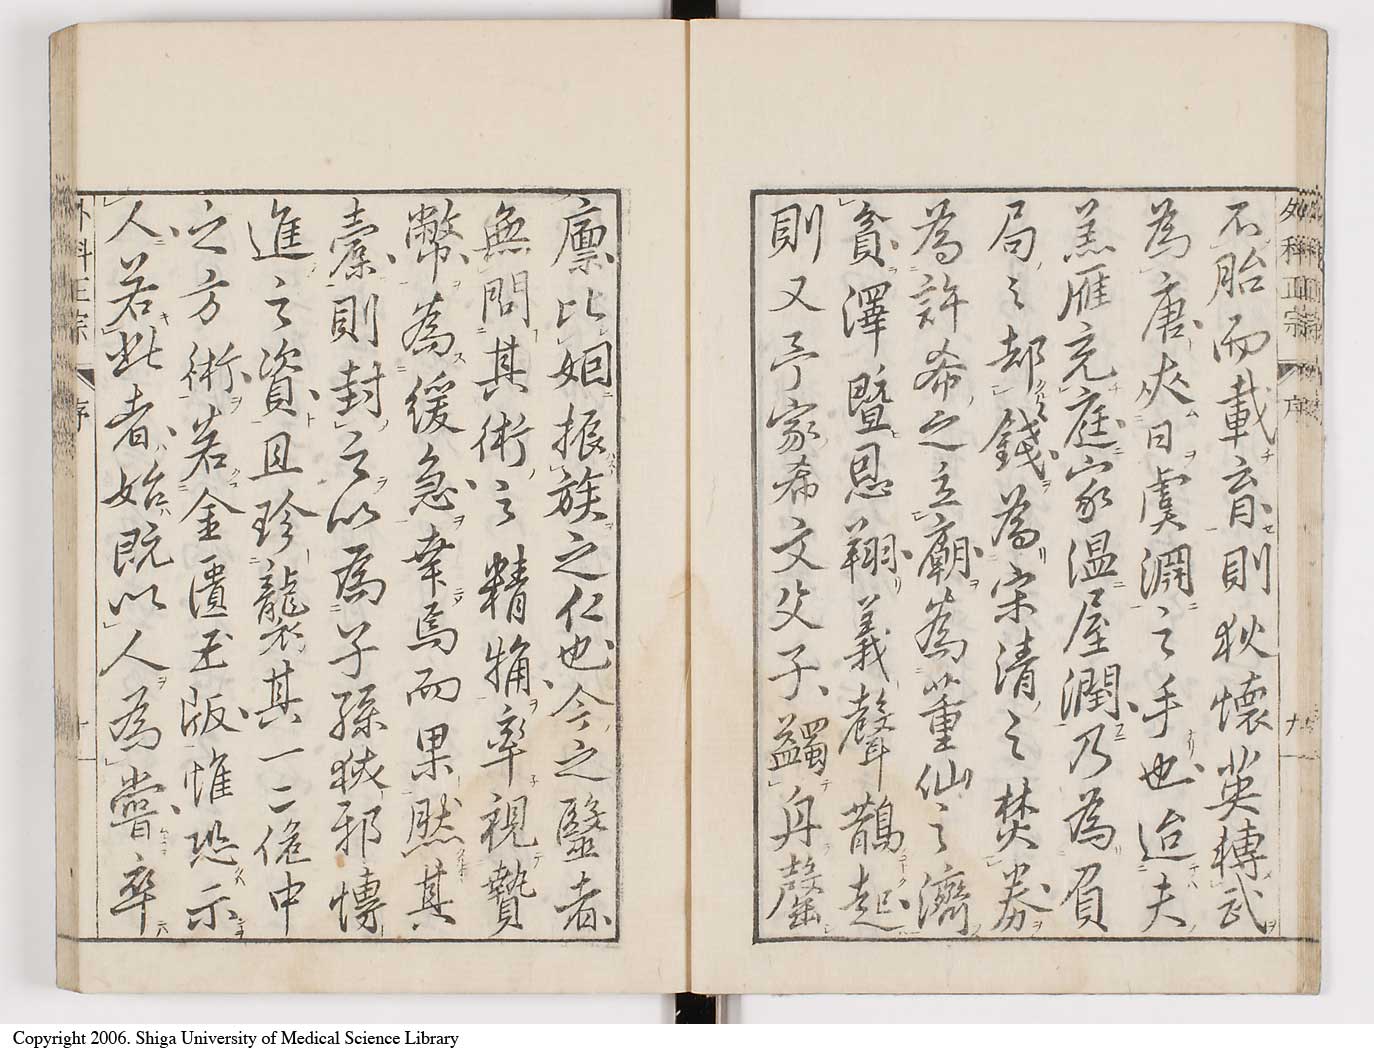 外科正宗 序 九
不胎而載育則狄懷英轉武
為唐夾日虞淵之手也迨夫
羔雁充庭家温屋潤乃為負
局之却錢為宋清之焚券
為許希之立廟為董仙之濟
貧澤曁恩翔義聲鵲起
則又亐家希文父子蠲舟罄
廪比姻振族之仁也今之醫者
無問其術之精觕率視贄
幣為緩急幸焉而果然其
橐則封之以為子孫狹邪慱
進之資且珍襲其一二僥中
之方術若金匱玉版惟恐示
人若此者始既以人為嘗卒
外科正宗 序 十
Copyright 2006. Shiga University of Medical Science Library